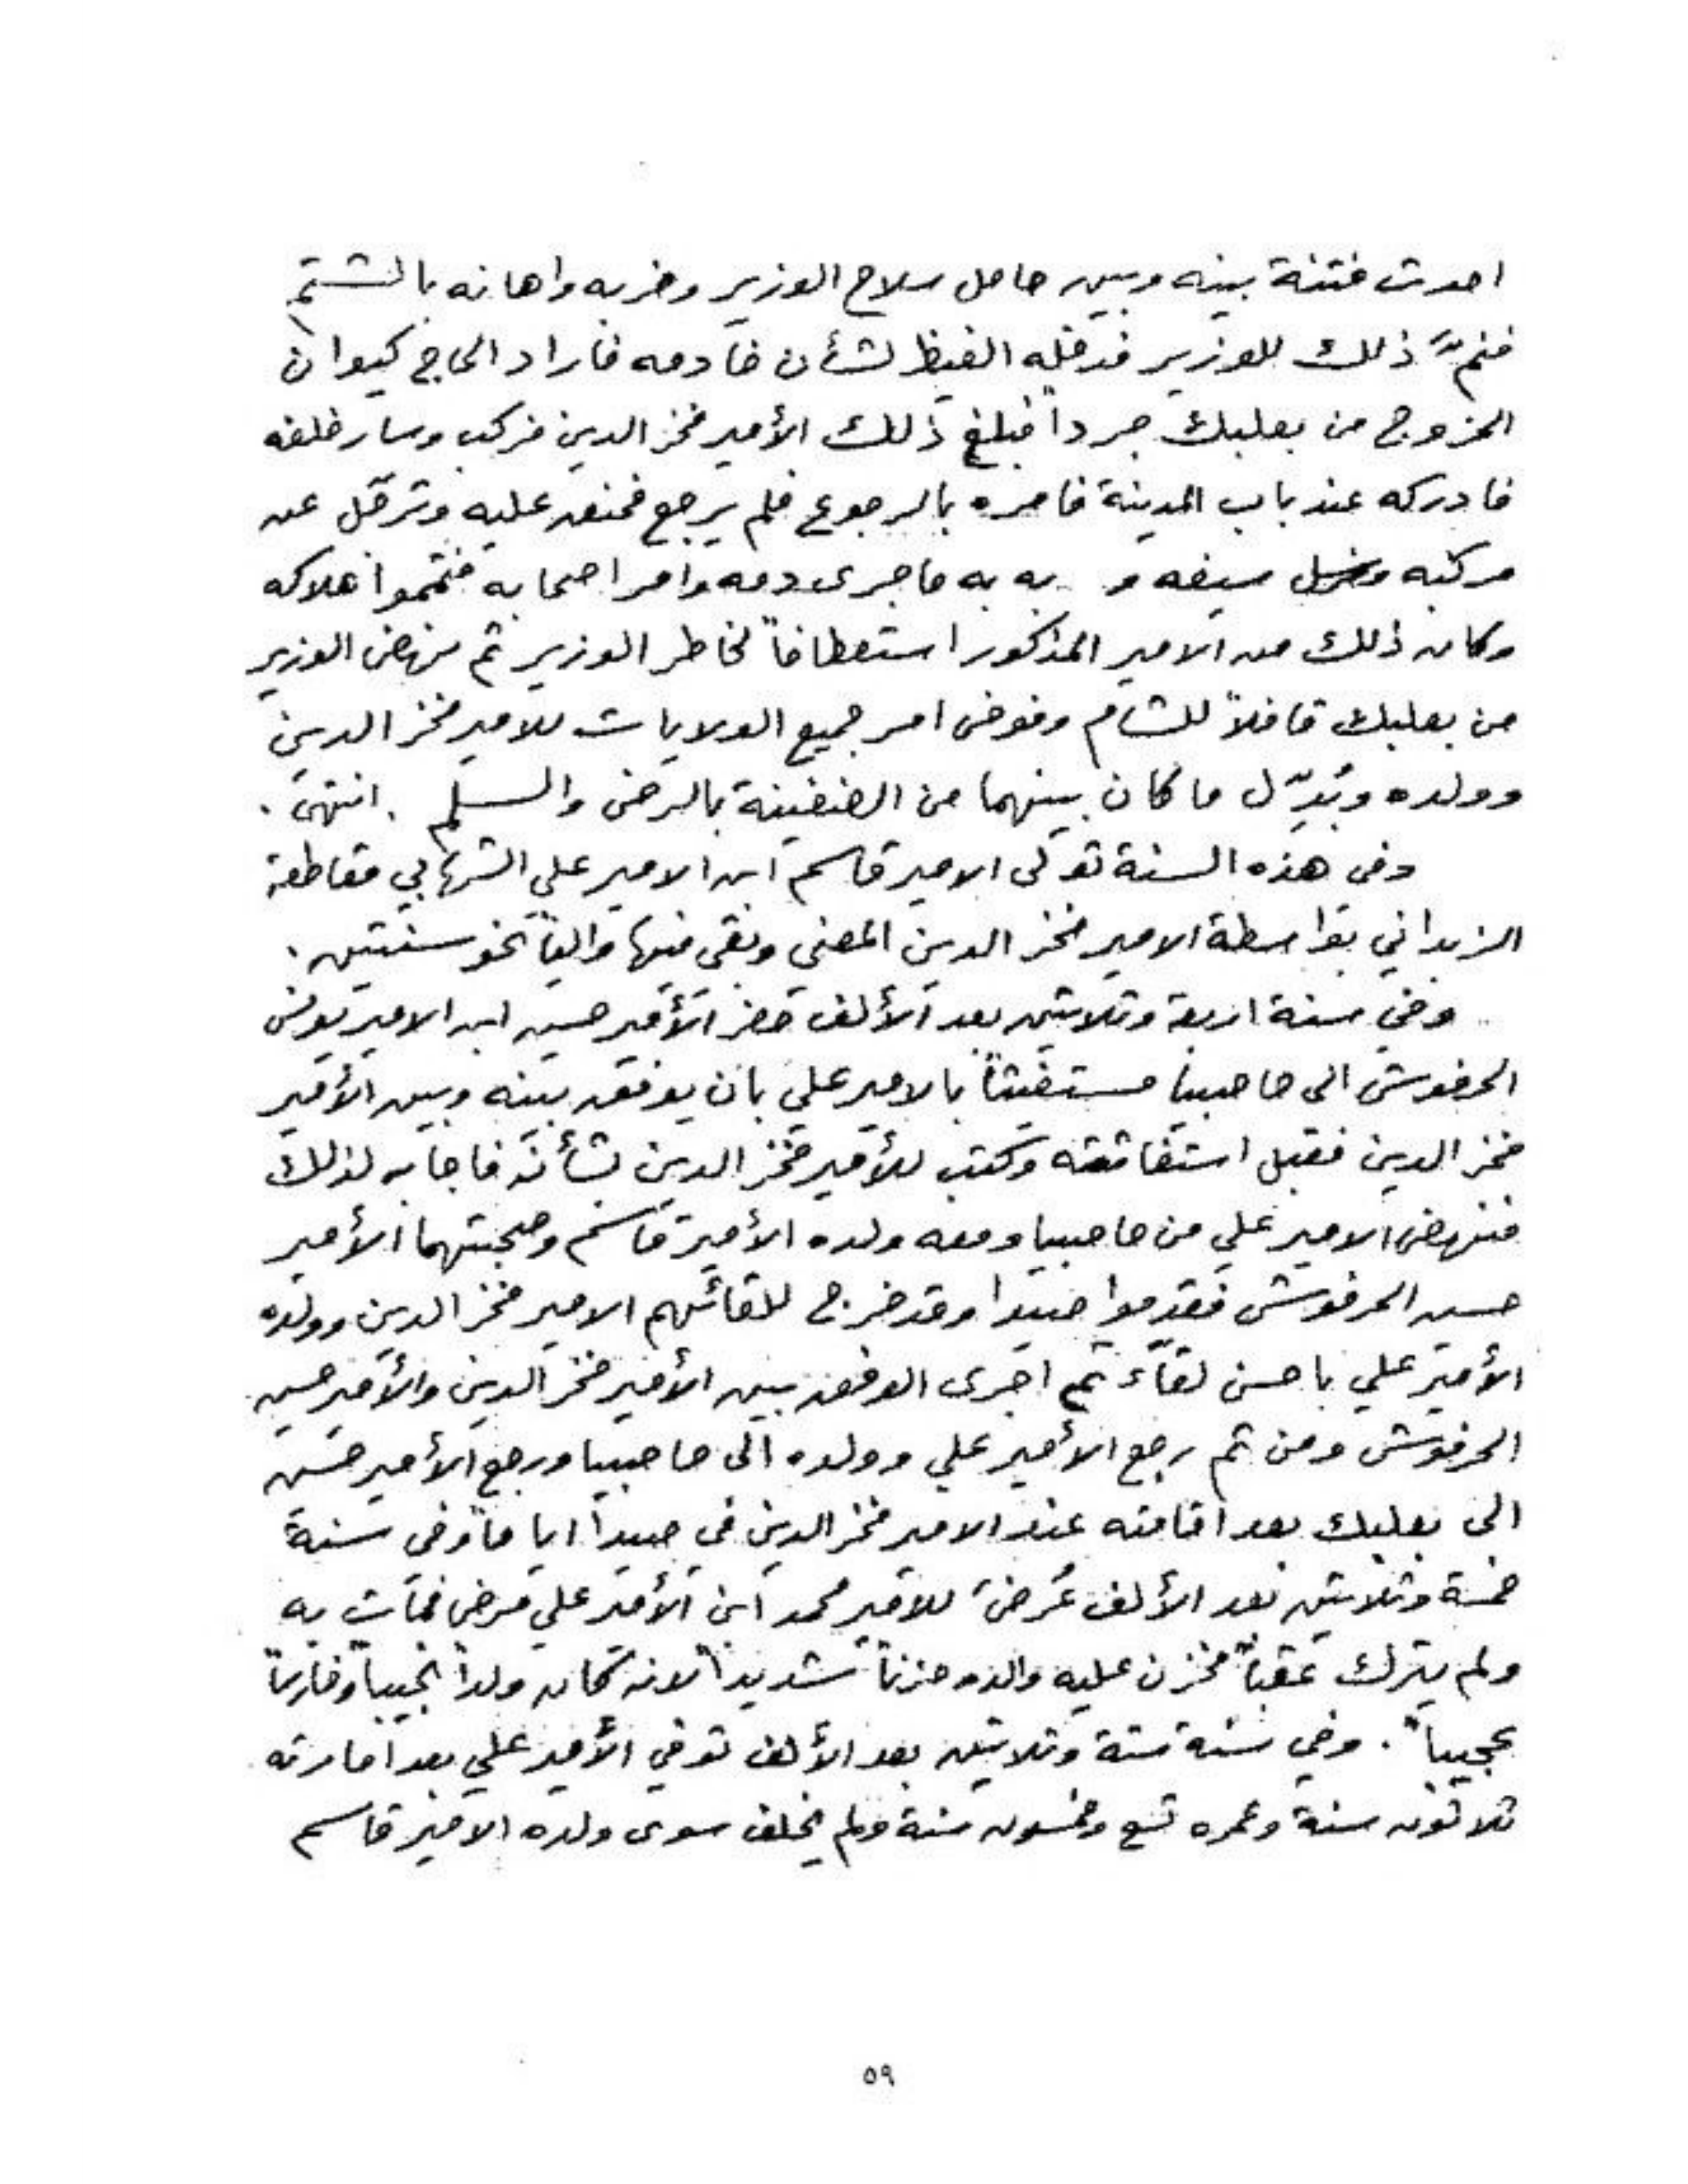 احدث فتنة بينه وبين حامل سلاح الوزير وضربه واهانه بالشتم
فنمّ ذلك للوزير فدخله الغيظ لشأن خادمه فاراد الحاج كيوان
الخروج من بعلبك حرداً فبلغ ذلك الأمير فخر الدين فركب وسار خلفه
فادركه عند باب المدينة فامره بالرجوع فلم يرجع فحنق عليه وترجّل عن
مركبه وسل سيفه و به به فاجرى دمه وامر اصحابه فتمموا هلاكه
وكان ذلك من الامير المذكور استعطافاً لخاطر الوزير ثم نهض الوزير
من بعلبك قافلاً للشام وفوض امر جميع الولايات للامير فخر الدين
وولده وبُدِّل ما كان بينهما من الضغينة بالرضى والسلم . انتهى .
وفي هذه السنة تولى الامير قاسم ابن الامير علي الشهابي مقاطعة
الزبداني بواسطة الامير فخر الدين المعني وبقي فيها والياً نحو سنتين .
وفي سنة اربعة وثلاثين بعد الألف حضر الأمير حسين ابن الامير يونس
الحرفوش الى حاصبيا مستغيثاً بالامير علي بان يوفق بينه وبين الأمير
فخر الدين فقبل استغاثته وكتب للأمير فخر الدين بشأنه فاجابه لذلك
فنهض الامير علي من حاصبيا ومعه ولده الأمير قاسم وصحبتهما الأمير
حسين الحرفوش فقدموا صيدا وقد خرج للقائهم الامير فخر الدين وولده
الأمير علي باحسن لقاء ثم اجرى الوفق بين الأمير فخر الدين والأمير حسين
الحرفوش ومن ثم رجع الأمير علي وولده الى حاصبيا ورجع الأمير حسين
الى بعلبك بعد اقامته عند الامير فخر الدين في صيدا اياماً وفي سنة
خمسة وثلاثين بعد الألف عُرض للامير محمد ابن الأمير علي مرض فمات به
ولم يترك عقباً فحزن عليه والده حزناً شديداً لانه كان ولداً نجيباً وفارساً
عجيباً . وفي سنة ستة وثلاثين بعد الألف توفي الأمير علي بعد امارته
ثلاثون سنة وعمره تسع وخمسون سنة ولم يخلف سوى ولده الامير قاسم
٥٩